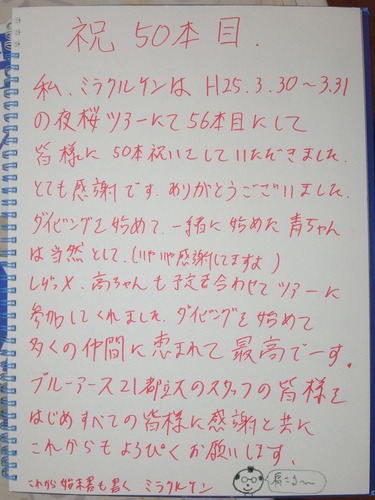 祝 50本目.
私、ミラクルケンは H25.3.30〜3.31
の夜桜ツアーにて 56本目にして
皆様に 50本祝いをしていただきました.
とても感謝です. ありがとうございました.
ダイビングを始めて、一緒に始めた 青ちゃん
は当然として.(いやいや感謝してますよ)
しげメ、高ちゃんも予定を合わせてツアーに
参加してくれました. ダイビングを始めて
多くの仲間に恵まれて 最高でーす.
ブルーアース21都立大のスタッフの皆様を
はじめすべての皆様に感謝と共に
これからもよろぴくお願いします.
これから始末書も書く ミラクルケン